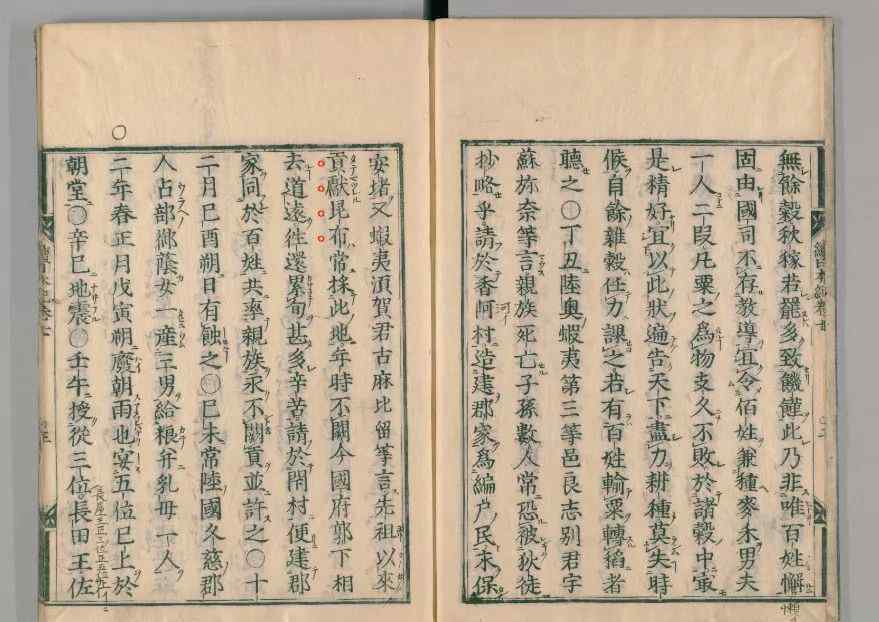 無餘穀秋稼若罷多致饑饉此乃非唯百姓懈
固由國司不存教導宜令佰姓兼種麥禾男夫
一人二段凡粟之爲物支久不敗於諸穀中㝡
是精好宜以此狀遍告天下盡力耕種莫失時
候自餘雜穀任力課之若有百姓輸粟轉稲者
聽之〇丁丑陸奥蝦夷第三等邑良志別君宇
蘇弥奈等言親族死亡子孫數人常恐被狄徒
抄略乎請於香阿村造建郡家爲編户民永保
安堵又蝦夷須賀君古麻比留等言先祖以來
貢獻昆布常採此地年時不闕今國府郭下相
去道遠徃還累旬甚多辛苦請於閇村便建郡
家同於百姓共率親族永不闕貢並許之〇十
二月己酉朔日有蝕之〇己未常陸國久慈郡
人占部御蔭女一産三男給粮并乳母一人
二年春正月戊寅朔廢朝雨也宴五位已上於
朝堂〇辛巳地震〇壬午授從三位長田王佐